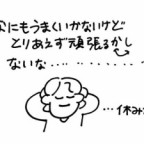 なにもうまくいかないけど
とりあえず頑張るかし
ないな............
...休み